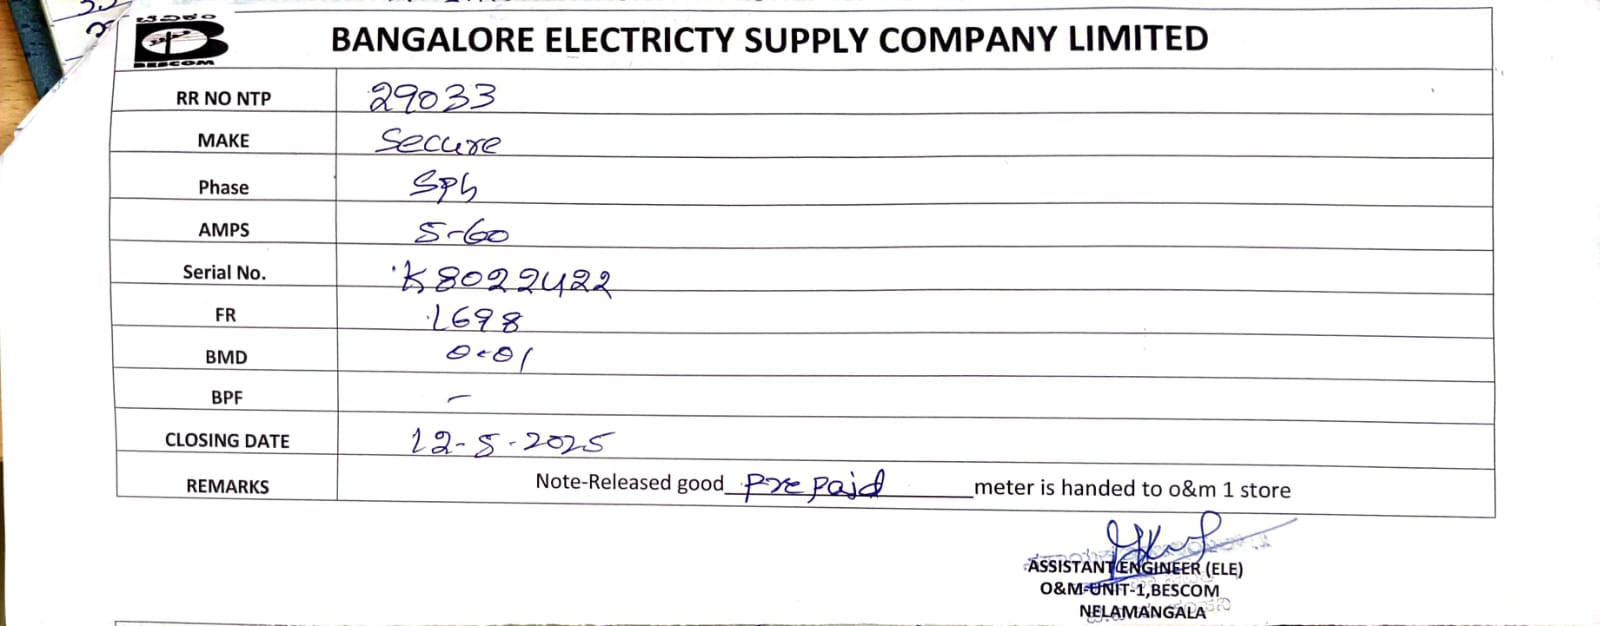 ಬೆವಿಕಂ
BESCOM
BANGALORE ELECTRICTY SUPPLY COMPANY LIMITED
RR NO NTP 29033
MAKE Secure
Phase Sph
AMPS 5-60
Serial No. K8022422
FR 1698
BMD 0.01
BPF -
CLOSING DATE 12-5-2025
REMARKS Note-Released good prepaid meter is handed to o&m 1 store
ASSISTANT ENGINEER (ELE)
O&M-UNIT-1,BESCOM
NELAMANGALA